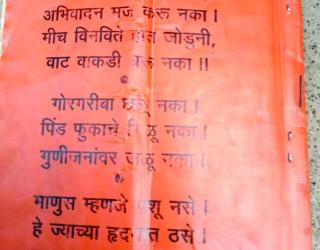 अभिवादन मज करू नका ।
मीच विनविते हात जोडुनी,
वाट वाकडी धरू नका ।।
गोरगरीबा छळू नका ।
पिंड फुकाचे गिळू नका ।
गुणीजनांवर जळू नका ।
माणुस म्हणजे पशू नसे ।
हे ज्याच्या हृदयात ठसे ।